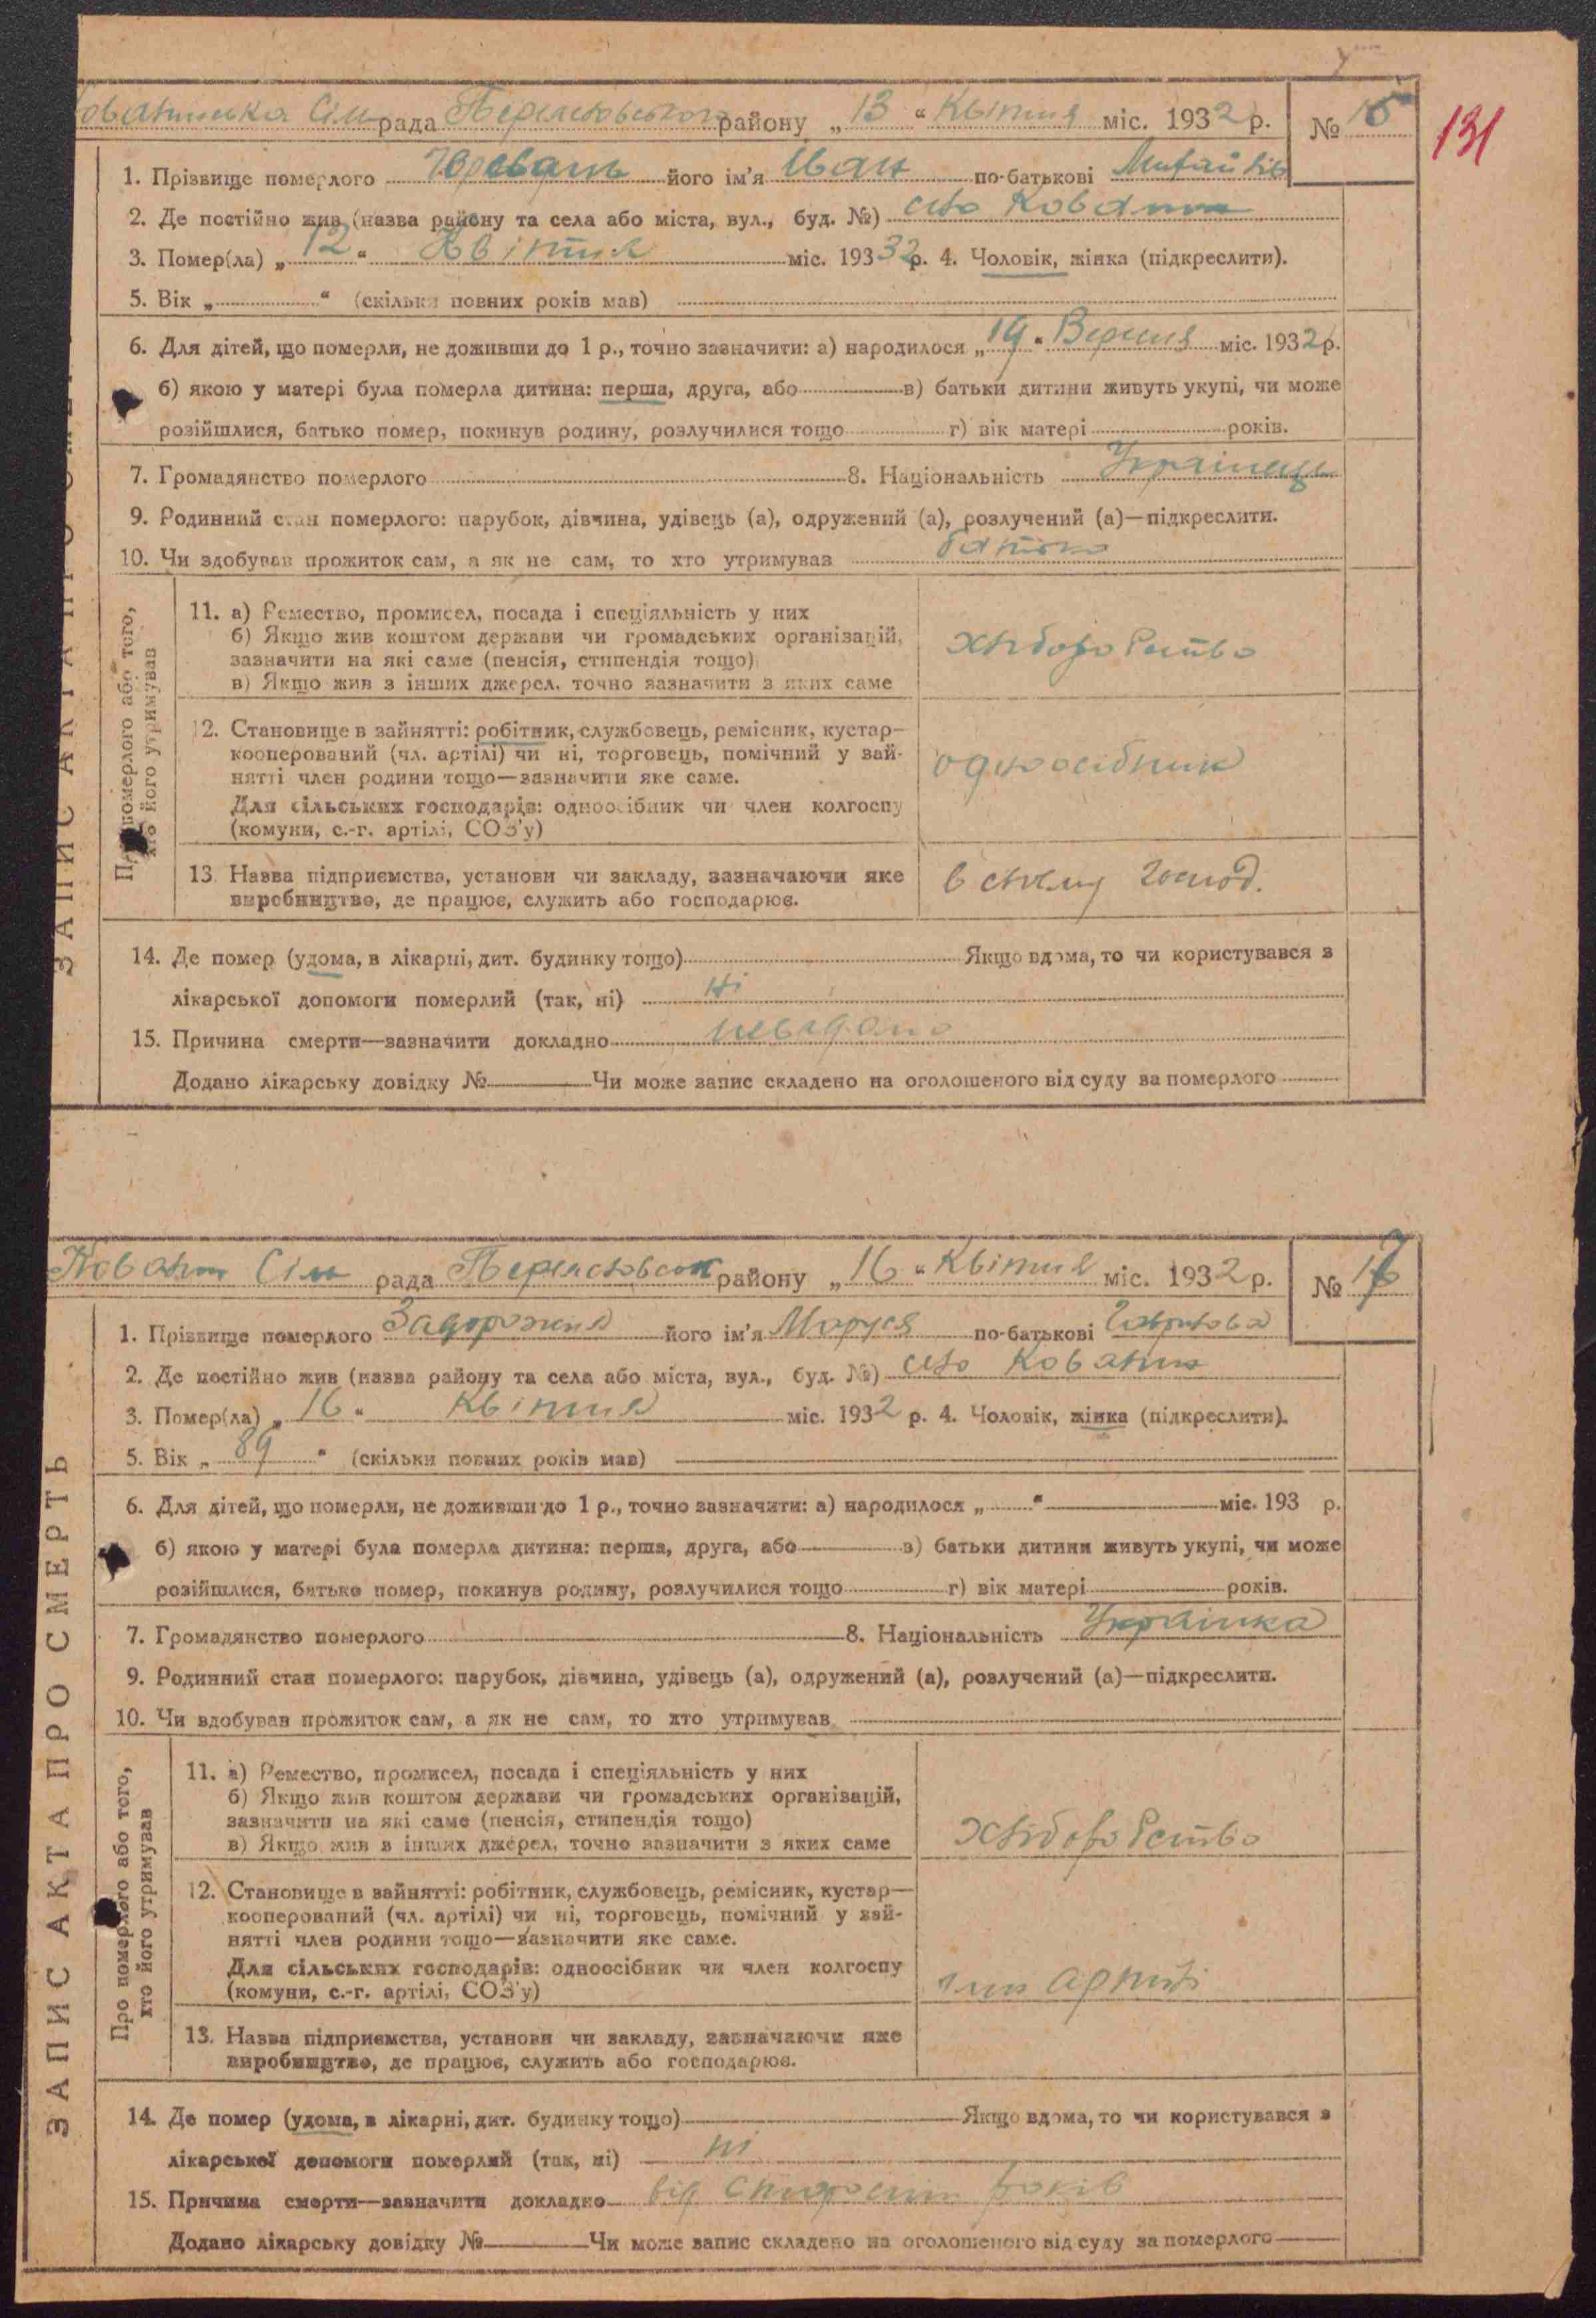 Сіл рада Переяславського району „13“ Квітня міс. 1932 р. № 15
131
1. Прізвище померлого його ім'я Іван по-батькові Михайлів
2. Де постійно жив (назва району та села або міста, вул., буд. №) село Ковалин
3. Помер(ла) „12“ Квітня міс. 193 32 р. 4. Чоловік, жінка (підкреслити).
5. Вік „ “ (скільки повних років мав)
6. Для дітей, що померли, не доживши до 1 р., точно зазначити: а) народилося „19“ Вересня міс. 1932 р.
б) якою у матері була померла дитина: перша, друга, або в) батьки дитини живуть укупі, чи може
розійшлися, батько помер, покинув родину, розлучилися тощо г) вік матері років.
7. Громадянство померлого 8. Національність Українець
9. Родинний стан померлого: парубок, дівчина, удівець (а), одружений (а), розлучений (а)—підкреслити.
10. Чи здобував прожиток сам, а як не сам, то хто утримував батько
ЗАПИС АКТА ПРО СМЕРТЬ
Про померлого або того,
хто його утримував
11. а) Ремество, промисел, посада і спеціяльність у них
б) Якщо жив коштом держави чи громадських організацій,
зазначити на які саме (пенсія, стипендія тощо)
в) Якщо жив з інших джерел, точно зазначити з яких саме
хліборобство
12. Становище в зайнятті: робітник, службовець, ремісник, кустар—
кооперований (чл. артілі) чи ні, торговець, помічний у зай-
нятті член родини тощо—зазначити яке саме.
Для сільських господарів: одноосібник чи член колгоспу
(комуни, с.-г. артілі, СОЗ'у)
одноосібник
13. Назва підприємства, установи чи закладу, зазначаючи яке
виробництво, де працює, служить або господарює.
в своему господ.
14. Де помер (удома, в лікарні, дит. будинку тощо) Якщо вдома, то чи користувався з
лікарської допомоги померлий (так, ні) ні
15. Причина смерти—зазначити докладно невідомо
Додано лікарську довідку № Чи може запис складено на оголошеного від суду за померлого
Ковалин Сіл рада Переяславськ району „16“ Квітня міс. 1932 р. №
1. Прізвище померлого Задорожня його ім'я Маруся по-батькові Гаврилова
2. Де постійно жив (назва району та села або міста, вул., буд. №) село Ковалин
3. Помер(ла) „16“ Квітня міс. 1932 р. 4. Чоловік, жінка (підкреслити).
5. Вік „89“ (скільки повних років мав)
6. Для дітей, що померли, не доживши до 1 р., точно зазначити: а) народилося „ “ міс. 193 р.
б) якою у матері була померла дитина: перша, друга, або в) батьки дитини живуть укупі, чи може
розійшлися, батько помер, покинув родину, розлучилися тощо г) вік матері років.
7. Громадянство померлого 8. Національність Українка
9. Родинний стан померлого: парубок, дівчина, удівець (а), одружений (а), розлучений (а)—підкреслити.
10. Чи здобував прожиток сам, а як не сам, то хто утримував
ЗАПИС АКТА ПРО СМЕРТЬ
Про померлого або того,
хто його утримував
11. а) Ремество, промисел, посада і спеціяльність у них
б) Якщо жив коштом держави чи громадських організацій,
зазначити на які саме (пенсія, стипендія тощо)
в) Якщо жив в інших джерел, точно зазначити з яких саме
хліборобство
12. Становище в зайнятті: робітник, службовець, ремісник, кустар—
кооперований (чл. артілі) чи ні, торговець, помічний у зай-
нятті член родини тощо—зазначити яке саме.
Для сільських господарів: одноосібник чи член колгоспу
(комуни, с.-г. артілі, СОЗ'у)
член артілі
13. Назва підприємства, установи чи закладу, зазначаючи яке
виробництво, де працює, служить або господарює.
14. Де помер (удома, в лікарні, дит. будинку тощо) Якщо вдома, то чи користувався з
лікарської допомоги померлий (так, ні) ні
15. Причина смерти—зазначити докладно від старости років
Додано лікарську довідку № Чи може запис складено на оголошеного від суду за померлого